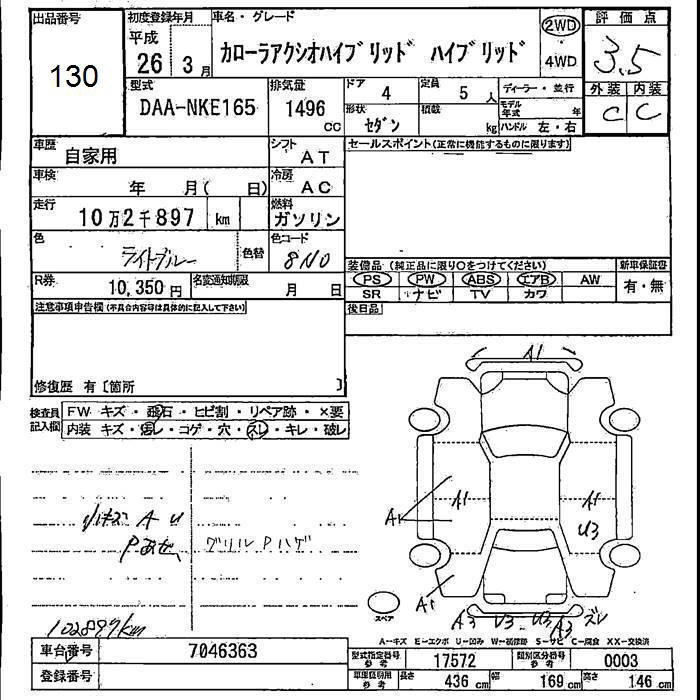 出品番号
130
初度登録年月
平成
26 3月
車名・グレード
カローラアクシオハイブリッド ハイブリッド
2WD
4WD
評価点
3.5
外装 内装
C C
型式
DAA-NKE165
排気量
1496
cc
ドア 4
定員 5 人
形状 セダン
積載 kg
ディーラー・並行
モデル年式 年
ハンドル 左・右
車歴
自家用
シフト
AT
セールスポイント(正常に機能するものに限ります)
車検
年 月( 日)
冷房
AC
走行
10万2千897 km
燃料
ガソリン
色
ライトブルー
色替
色コード
8N0
装備品 (純正品に限り○をつけてください)
新車保証書
PS PW ABS エアB AW
SR ナビ TV カワ
有・無
R券
10,350 円
名変通知期限
月 日
後日品
注意事項申告欄(不具合内容等は具体的に記入して下さい)
修復歴 有〔箇所 〕
検査員記入欄
FW キズ・飛石・ヒビ割・リペア跡・×要
内装 キズ・汚レ・コゲ・穴・スレ・キレ・破レ
A1
A1
A1
A1
U3
A1
小キズ A U
Pあせ、グリルPハゲ
102897km
スペア
A3 U3 U3 A3 ズレ
A-キズ E-エクボ U-凹み W-補修跡 S-サビ C-腐食 XX-交換済
車台番号
7046363
登録番号
型式指定番号
参考
17572
類別区分番号
参考
0003
車庫証明用
参考
長さ 436 cm 幅 169 cm 高さ 146 cm